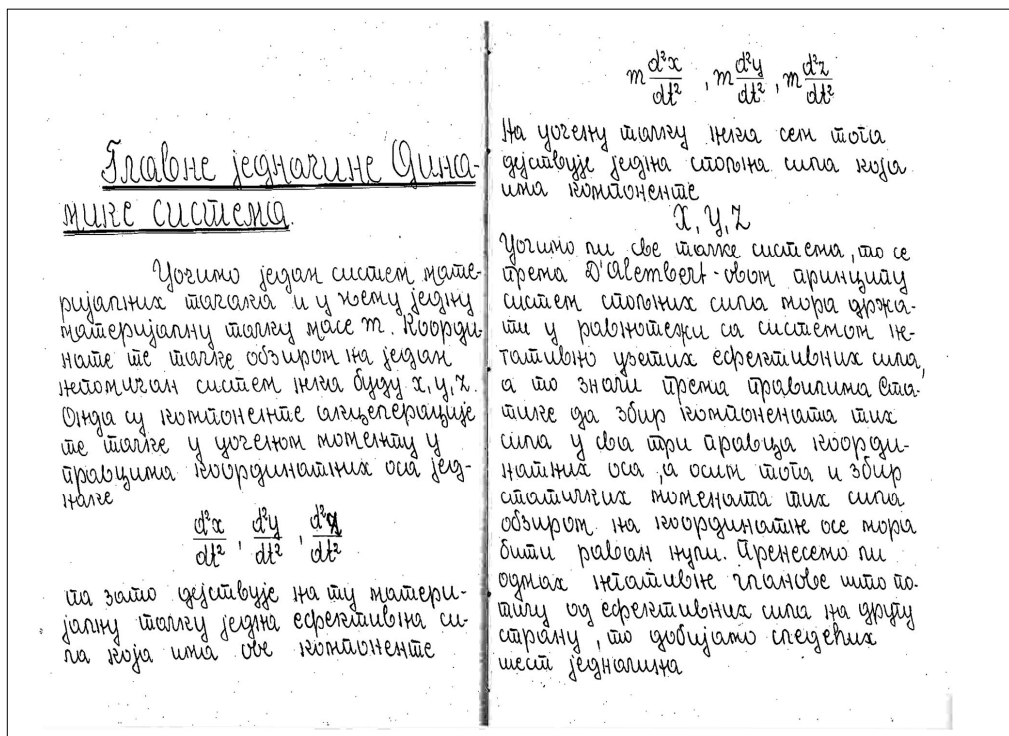 Главне једначине Дина-
мике система.
Уочимо један систем мате-
ријалних тачака и у њему једну
материјалну тачку масе m. Коорди-
нате те тачке обзиром на један
непомичан систем нека буду x, y, z.
Онда су компоненте акцелерације
те тачке у уоченом моменту у
правцима координатних оса јед-
наке
d²x/dt², d²y/dt², d²z/dt²
па зато дејствује на ту матери-
јалну тачку једна ефективна си-
ла која има ове компоненте
m d²x/dt², m d²y/dt², m d²z/dt²
На уочену тачку нека сем тога
дејствује једна спољна сила која
има компоненте
X, Y, Z
Уочимо ли све тачке система, то се
према D'Alembert-овом принципу
систем спољних сила мора држа-
ти у равнотежи са системом не-
гативно узетих ефективних сила,
а то значи према правилима Ста-
тике да збир компонената тих
сила у сва три правца коорди-
натних оса, а осим тога и збир
статичких момената тих сила
обзиром на координатне осе мора
бити раван нули. Пренесемо ли
одмах негативне чланове што по-
тичу од ефективних сила на другу
страну, то добијамо следећих
шест једначина